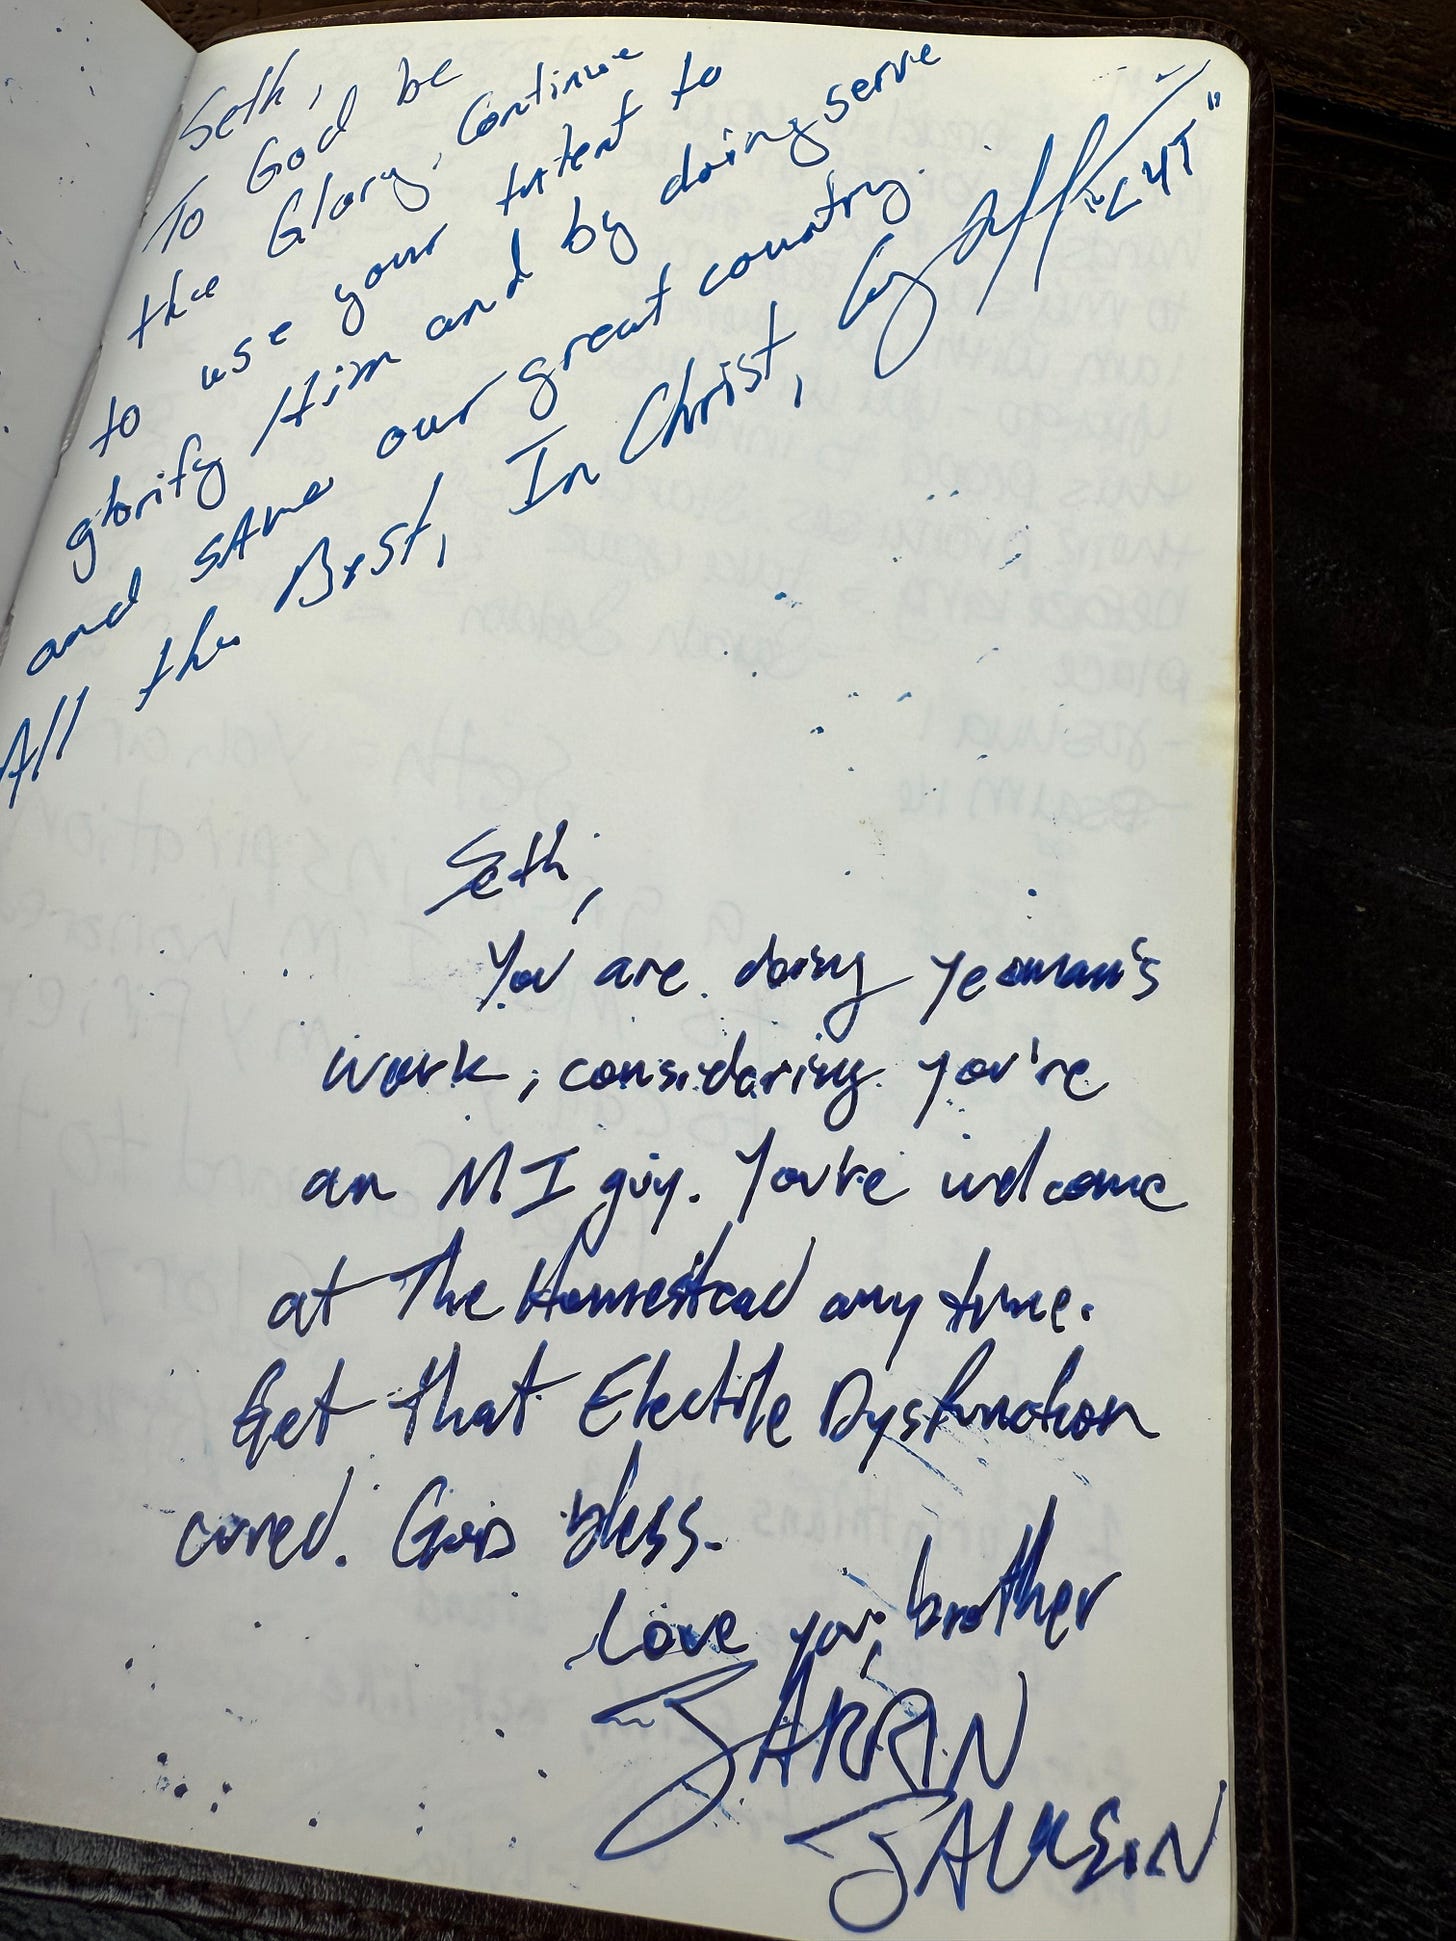 Seth,
To God be
the Glory. Continue
to use your intent to
glorify Him and by doing serve
and serve our great country.
All the Best, In Christ, "C4T"
Seth,
You are doing yeoman's
work, considering you're
an MI guy. You're welcome
at The Homestead any time.
Get that Electile Dysfunction
cured. God bless.
Love you, brother
JARRIN
JACKSON